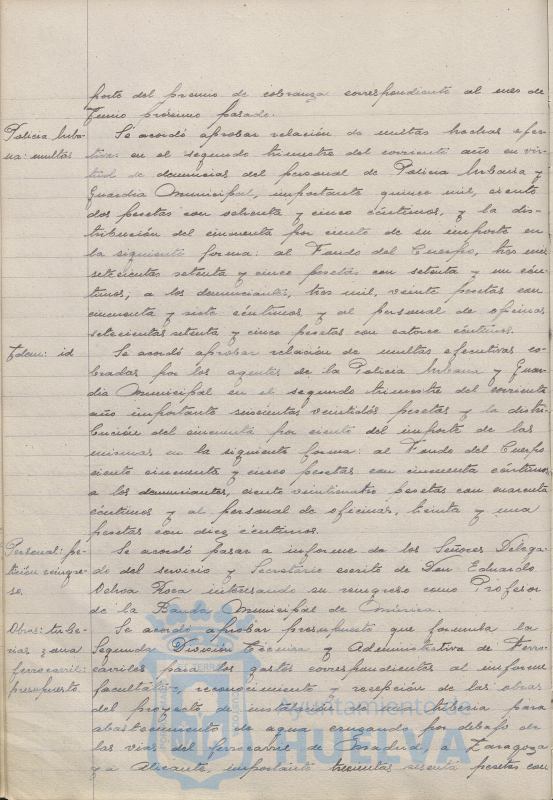 porte del premio de cobranza correspondiente al mes de
Junio próximo pasado.
Policía Urba-
na: multas
Se acordó aprobar relación de multas hechas efec-
tivas en el segundo trimestre del corriente año en vir-
tud de denuncias del personal de Policía Urbana y
Guardia Municipal, importante quince mil, ciento
dos pesetas con ochenta y cinco céntimos, y la dis-
tribución del cincuenta por ciento de su importe en
la siguiente forma: al Fondo del Cuerpo, tres mil
setecientas setenta y cinco pesetas con setenta y un cén-
timos; a los denunciantes, tres mil, veinte pesetas con
cincuenta y siete céntimos, y al personal de oficinas
setecientas setenta y cinco pesetas con catorce céntimos.
Idem: id
Se acordó aprobar relación de multas ejecutivas co-
bradas por los agentes de la Policía Urbana y Guar-
dia Municipal en el segundo trimestre del corriente
año importante seiscientas veintidós pesetas y la distri-
bución del cincuenta por ciento del importe de las
mismas en la siguiente forma: al Fondo del Cuerpo
ciento cincuenta y cinco pesetas con cincuenta céntimos,
a los denunciantes, ciento veinticuatro pesetas con cuarenta
céntimos y al personal de oficinas, treinta y una
pesetas con diez céntimos.
Personal: pe-
tición reingre-
so.
Se acordó pasar a informe de los Señores Delega-
do del servicio y Secretario escrito de Don Eduardo
Ochoa Roca interesando su reingreso como Profesor
de la Banda Municipal de Música.
Obras: tube-
rías zona
ferrocarril:
presupuesto
Se acordó aprobar presupuesto que formula la
Segunda División Técnica y Administrativa de Ferro-
carriles para los gastos correspondientes al informe
facultativo, reconocimiento y recepción de las obras
del proyecto de instalación de una tubería para
abastecimiento de agua cruzando por debajo de
las vías del ferrocarril de Madrid, a Zaragoza
y a Alicante, importante trescientas sesenta pesetas con
Ayuntamiento de
HUELVA